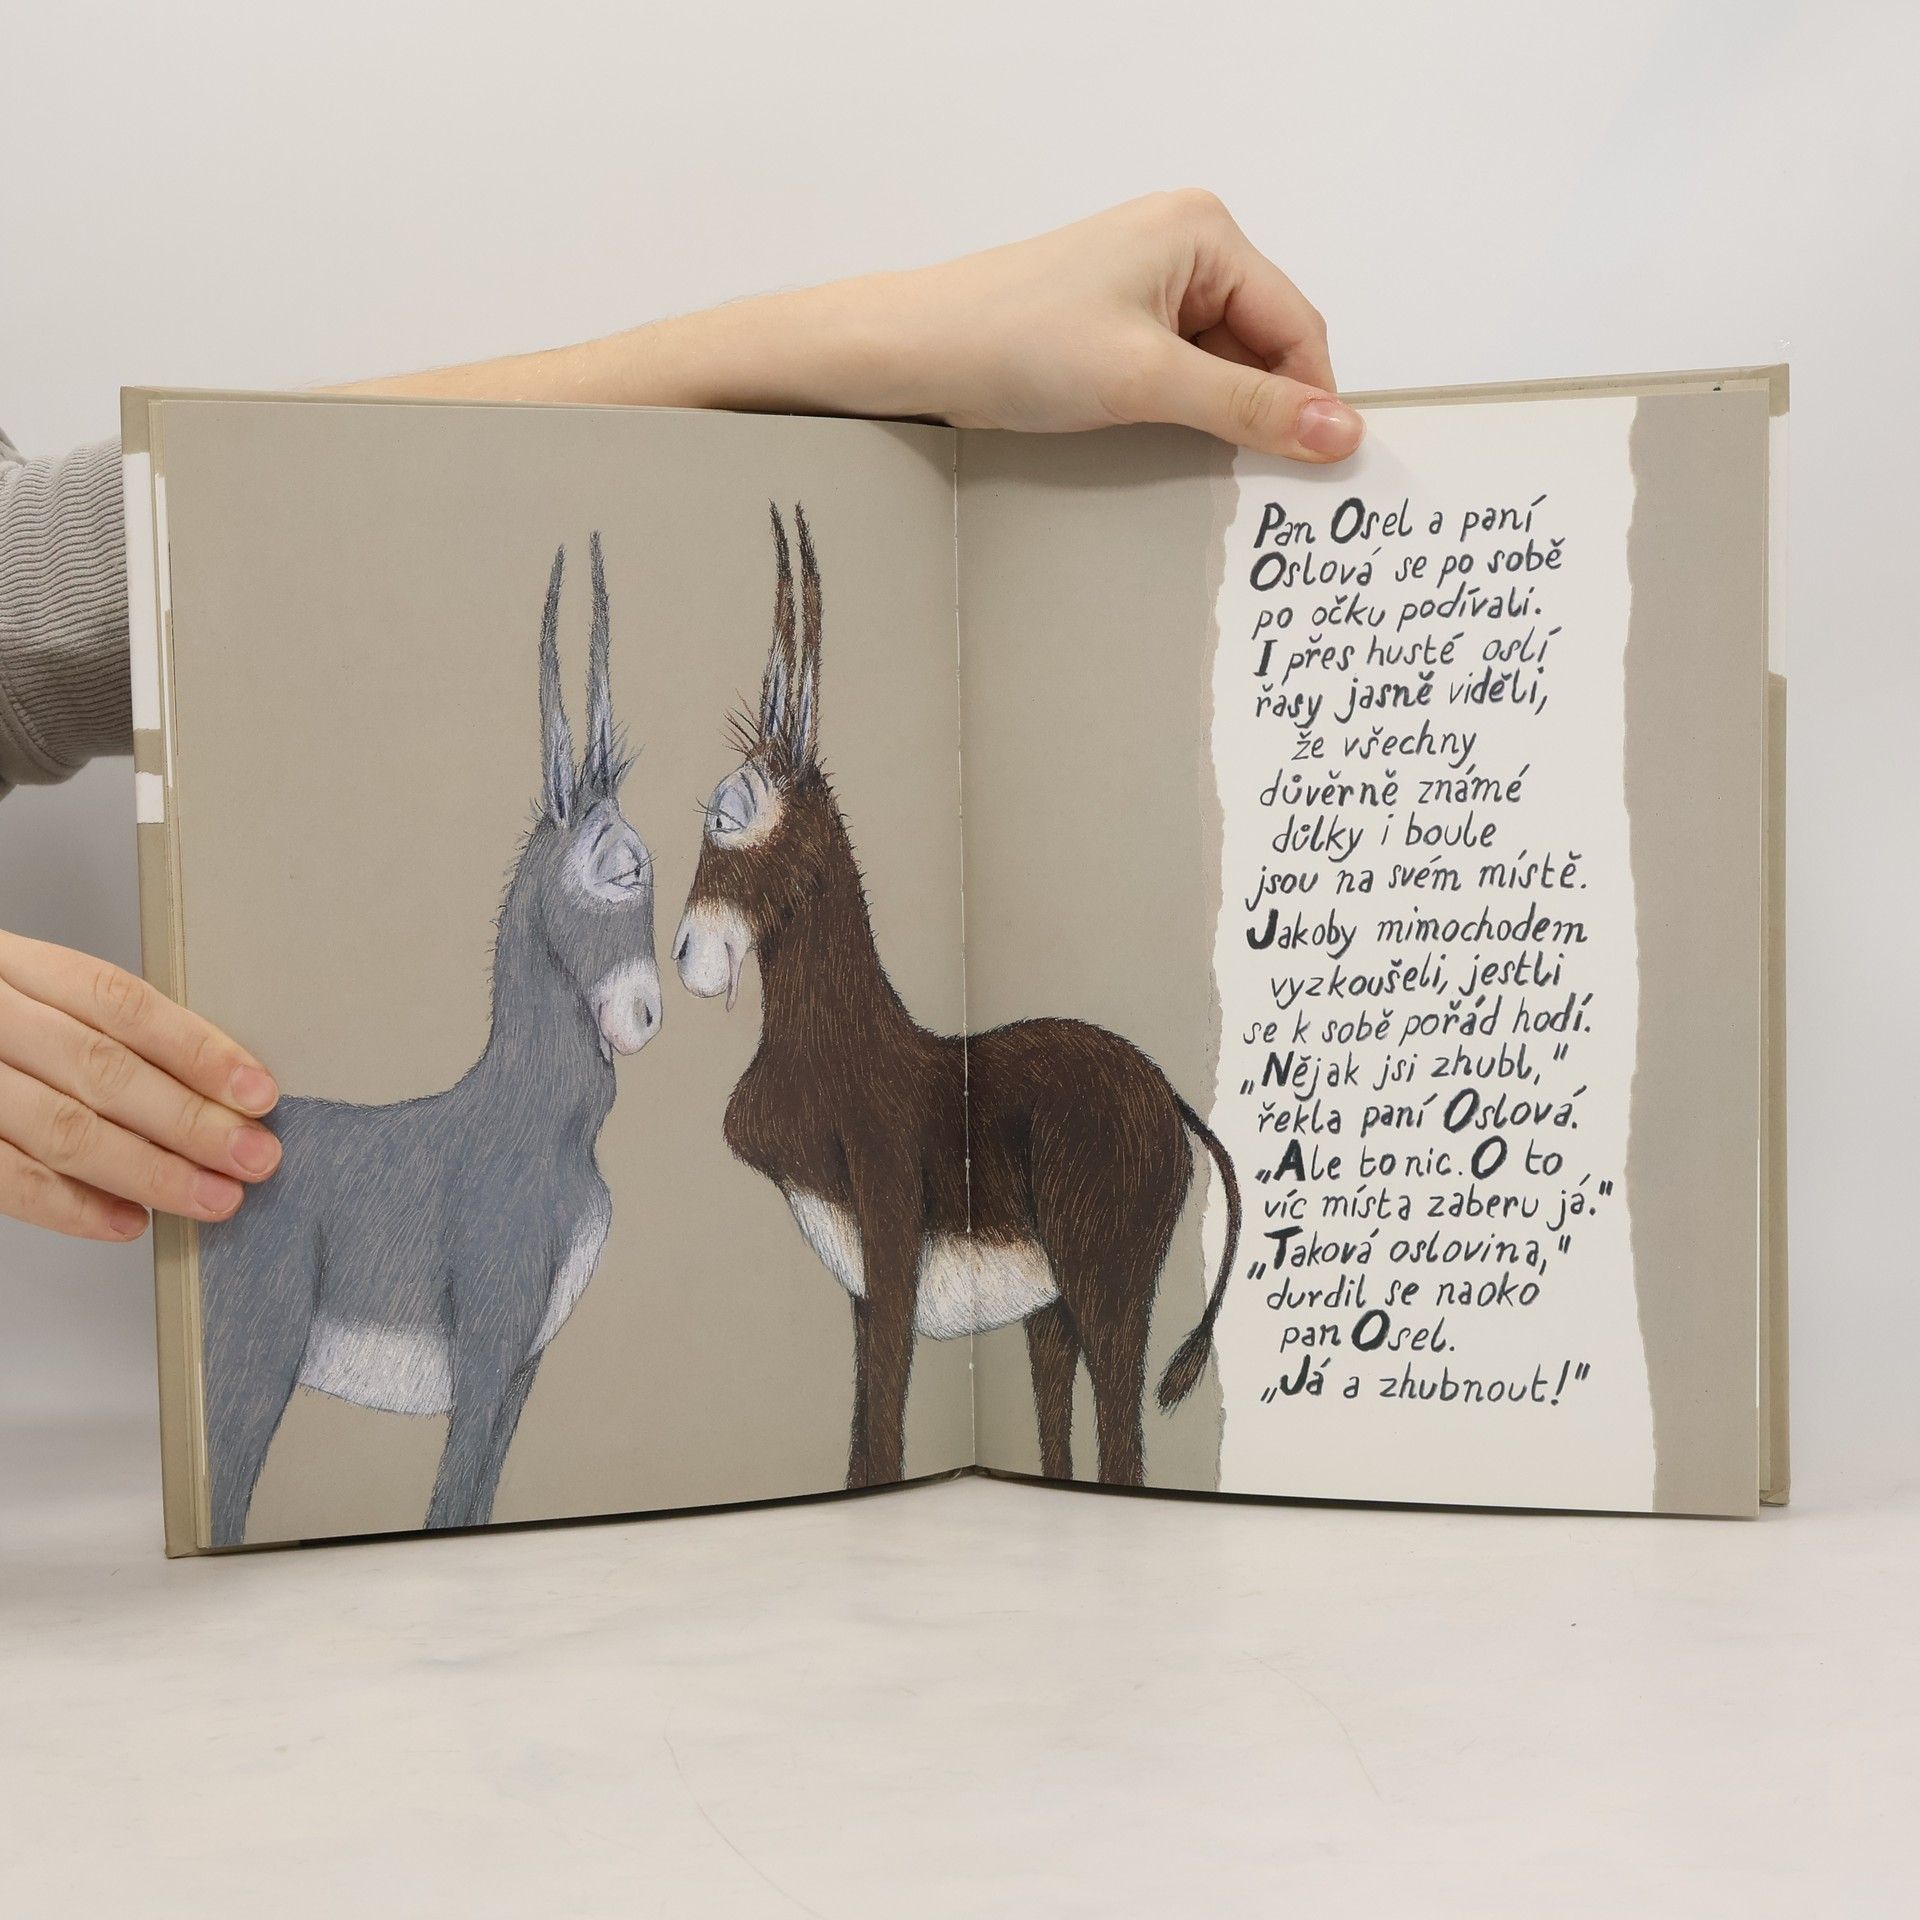 Pan Osel a paní
Oslová se po sobě
po očku podívali.
I přes husté oslí
řasy jasně viděli,
že všechny
důvěrně známé
důlky i boule
jsou na svém místě.
Jakoby mimochodem
vyzkoušeli, jestli
se k sobě pořád hodí.
„Nějak jsi zhubl,"
řekla paní Oslová.
„Ale to nic. O to
víc místa zaberu já."
„Taková oslovina,"
durdil se naoko
pan Osel.
„Já a zhubnout!"